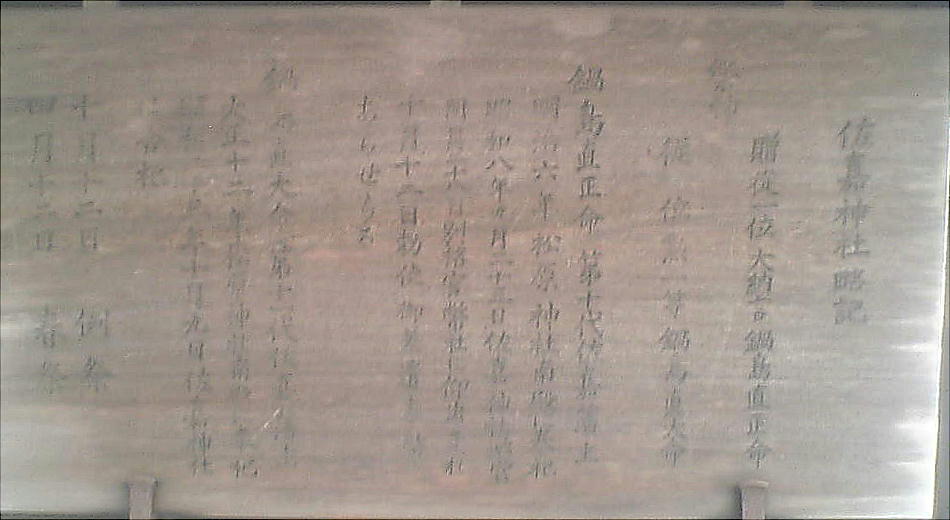 佐嘉神社略記
祭神
贈従一位大納言鍋島直正命
従 位勲一等鍋島直大命
鍋島直正命 第十代佐嘉藩主
明治六年松原神社南殿奉祀
昭和八年 月二十三日佐嘉神社
同月十八日別格官幣社仰出され
十月十二日勅使御差
あらせらる
鍋島直大命 第十一代佐嘉藩主
大正十二年佐嘉神社南殿奉祀
昭和二十 年十月九日佐嘉神社
に合祀
十月十二日 例祭
四月十二日 春祭